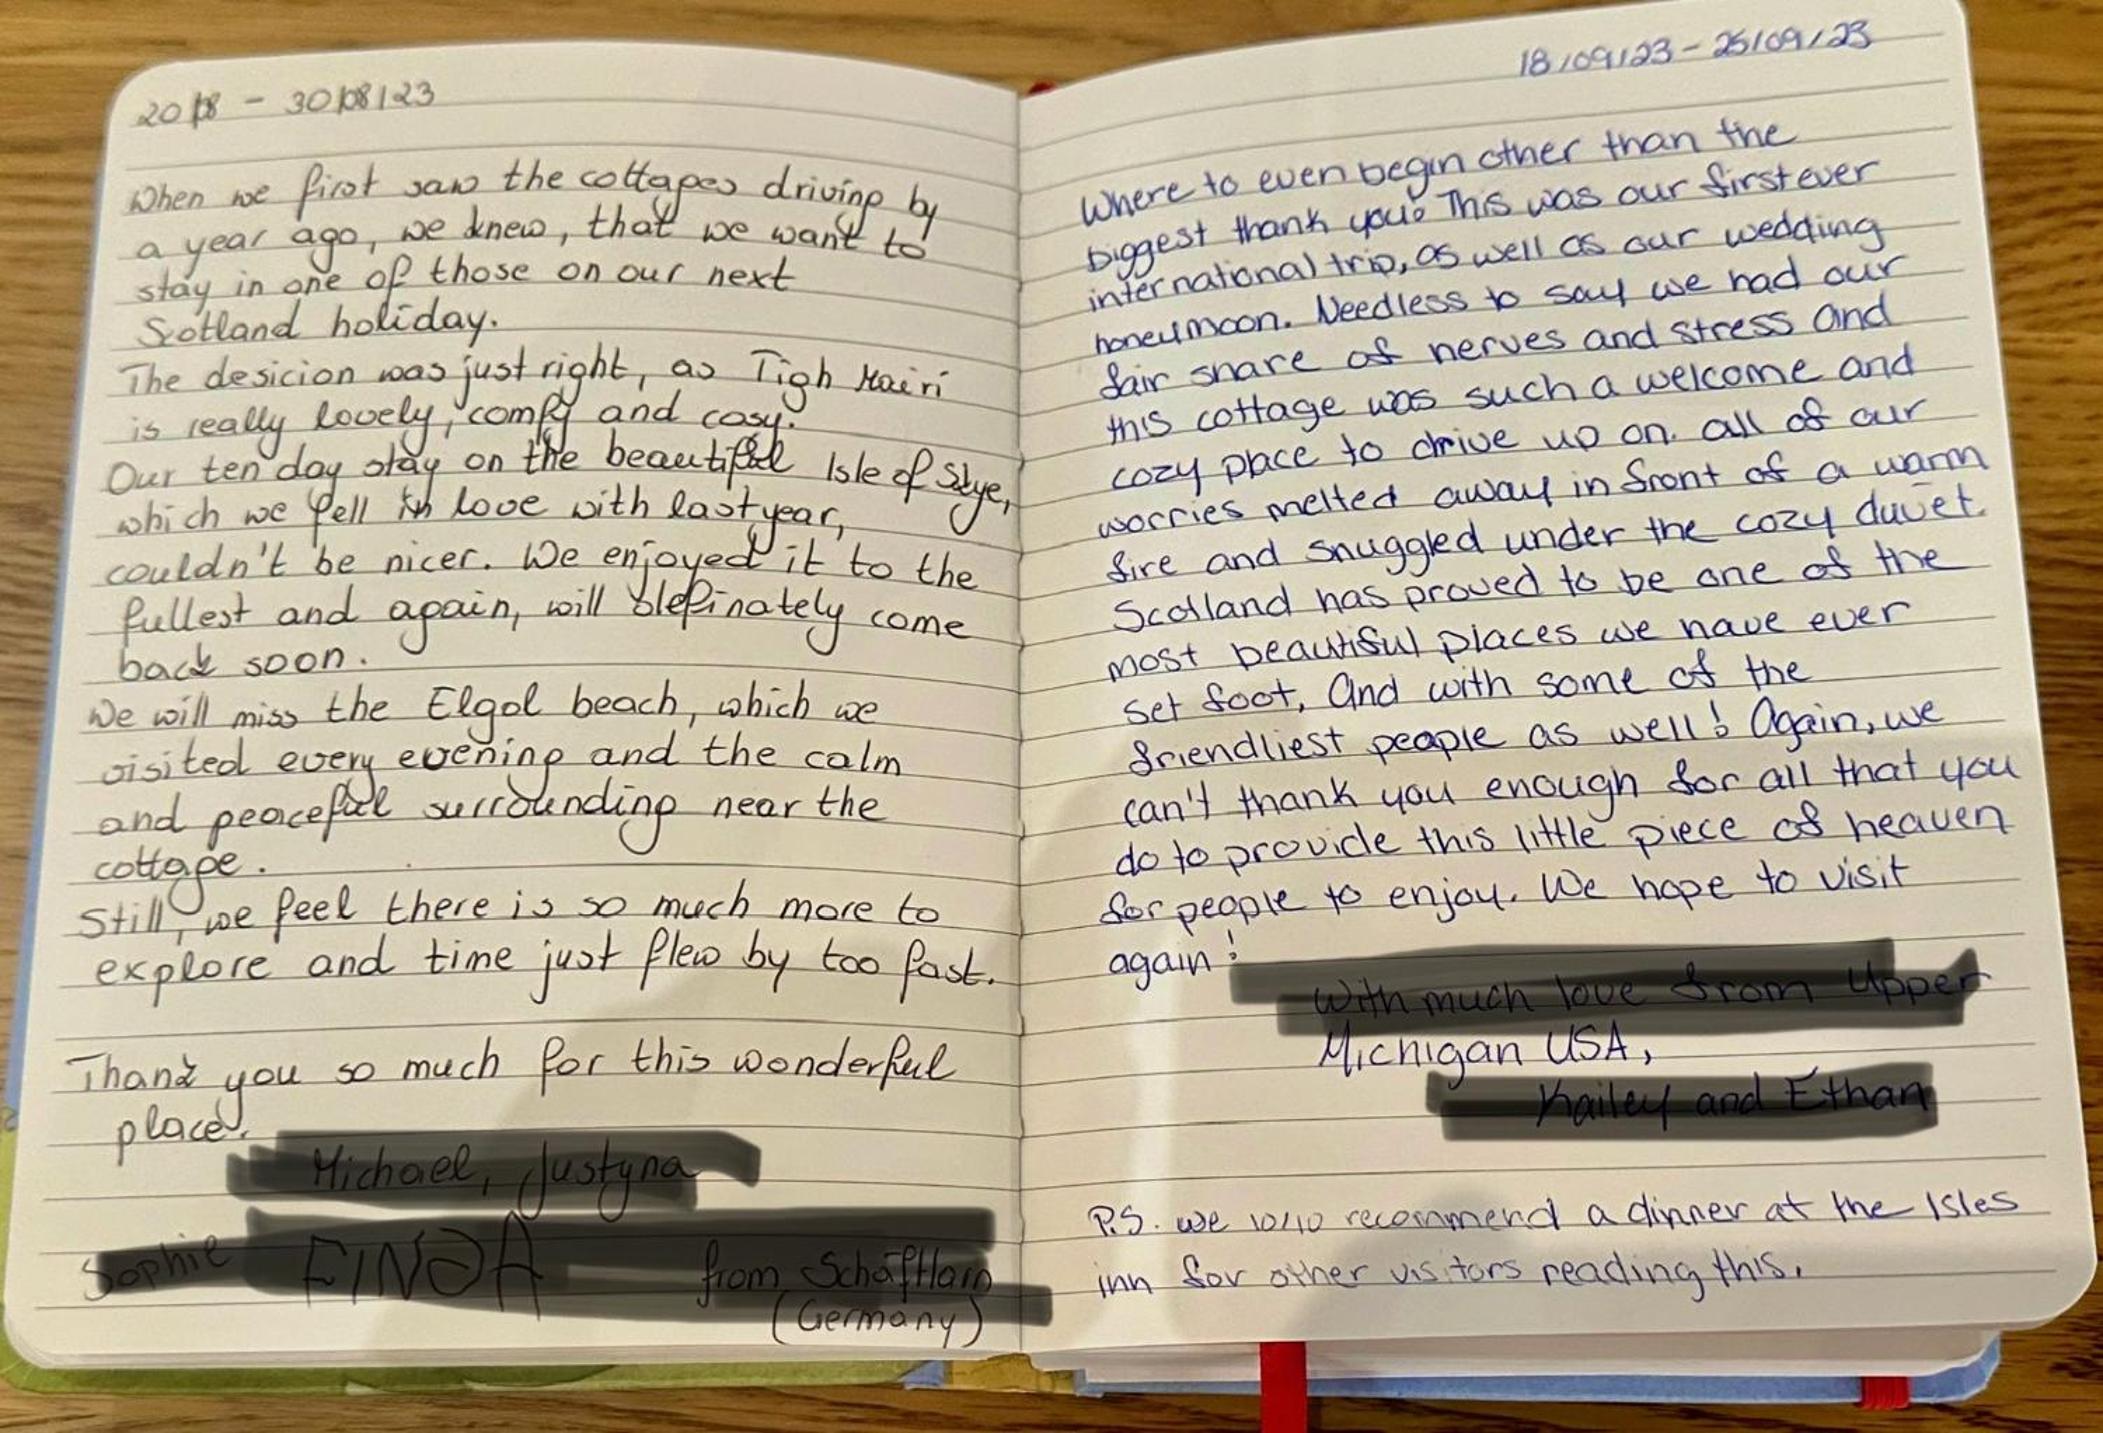 20/8 - 30/08/23
When we first saw the cottages driving by
a year ago, we knew, that we want to
stay in one of those on our next
Scotland holiday.
The desicion was just right, as Tigh Mairi
is really lovely, comfy and cosy.
Our ten day stay on the beautiful Isle of Skye,
which we fell in love with last year,
couldn't be nicer. We enjoyed it to the
fullest and again, will definately come
back soon.
We will miss the Elgol beach, which we
visited every evening and the calm
and peaceful surrounding near the
cottage.
Still, we feel there is so much more to
explore and time just flew by too fast.
Thank you so much for this wonderful
place.
Michael, Justyna
Sophie from Schäftlarn
(Germany)
18/09/23 - 25/09/23
Where to even begin other than the
biggest thank you! This was our first ever
international trip, as well as our wedding
honeymoon. Needless to say we had our
fair share of nerves and stress and
this cottage was such a welcome and
cozy place to drive up on. all of our
worries melted away in front of a warm
fire and snuggled under the cozy duvet.
Scotland has proved to be one of the
most beautiful places we have ever
set foot, and with some of the
friendliest people as well! Again, we
can't thank you enough for all that you
do to provide this little piece of heaven
for people to enjoy. We hope to visit
again!
With much love from Upper
Michigan USA,
Kailey and Ethan
P.S. we 10/10 recommend a dinner at the Isles
inn for other visitors reading this.